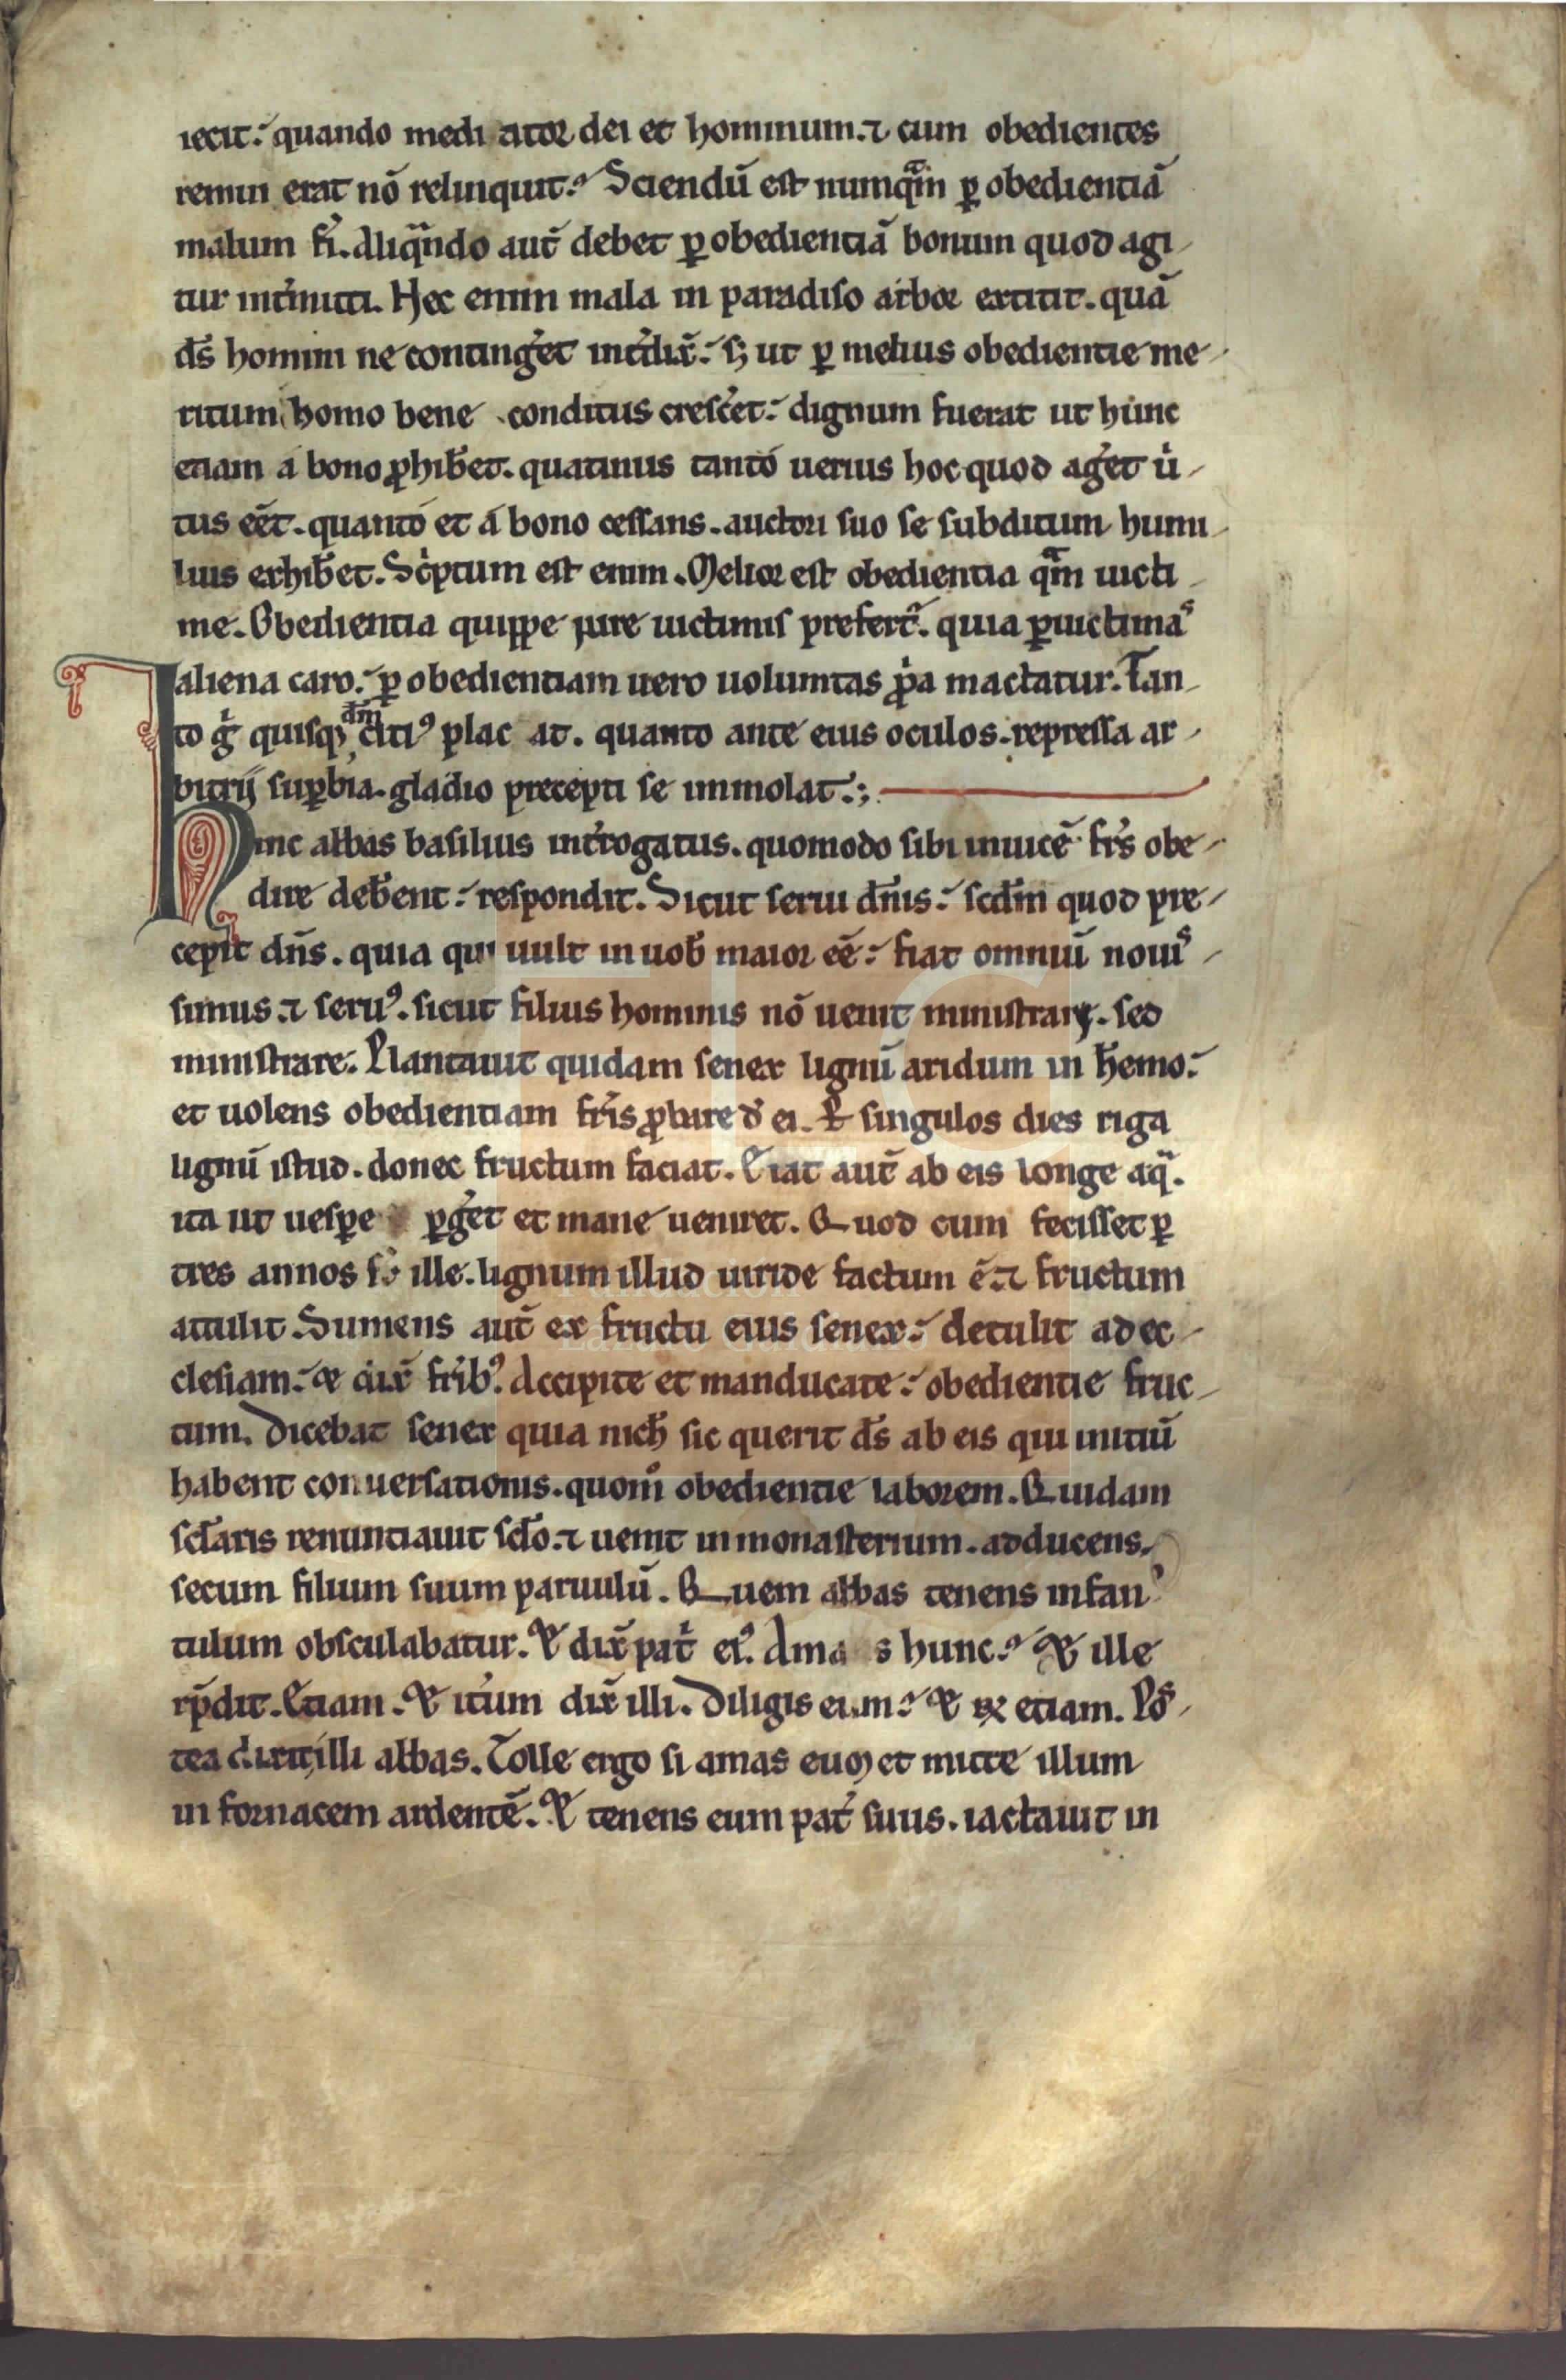 iecit. quando medi ator dei et hominum. ⁊ cum obedientes
remin erat nō relinquit. Sciendū est numqͣm ꝑ obedientiā
malum fi. Aliqͣndo aut̄ debet ꝑ obedientiā bonum quod agi
tur int̓mitti. Hec enim mala in paradiso arbor extitit. quā
ds̄ homini ne conting̓et int̓dix̄. sꝫ ut ꝑ melius obedientie me
ritum homo bene conditus cresc̓et. dignum fuerat ut hunc
etiam a bono ꝓhib̓et. quatinus tanto uerius hoc quod ag̓et uͥ
tus eēt. quanto et a bono cessans. auctori suo se subditum humi
lius exhib̓et. Scͥptum est enim. Melior est obedientia qͣm uicti
me. Obedientia quippe iure uictimis prefert᷑. quia ꝑ uictimas
aliena caro. ꝑ obedientiam uero uoluntas ꝓͥa mactatur. Tan
to gͥ quisqꝫ dm̄ citiꝰ plac at. quanto ante eius oculos. repressa ar
bitrij suꝑbia. gladio precepti se immolat.
Hinc abbas basilius int̓rogatus. quomodo sibi inuicē frs̄ obe
dire deb̓ent. respondit. Sicut serui dn̄is. scdm̄ quod pre
cepit dn̄s. quia qui uult in uob̄ maior eē. fiat omniū nouiˢ
simus. ⁊ seruꝰ. sicut filius hominis nō uenit ministrary. sed
ministrare. Plantauit quidam senex lignū aridum in h̓emo.
et uolens obedientiam fr̄is ꝓbare d̄ ei. Per singulos dies riga
lignū istud. donec fructum faciat. Erat aut̄ ab eis longe aqͣ.
ita ut uesꝑe ꝑg̓et et mane ueniret. Quod cum fecisset ꝑ
tres annos fr̄ ille. lignum illud uiride factum ē. ⁊ fructum
attulit. Sumens aut̄ ex fructu eius senex. detulit ad ec
clesiam. et dix̄ fr̄ibꝰ. Accipite et manducate. obedientie fruc
tum. Dicebat senex quia nich̄ sic querit ds̄ ab eis qui initiū
habent conuersationis. quomͦ obedientie laborem. Quidam
scl̄aris renuntiauit scl̄o. ⁊ uenit in monasterium. adducens
secum filium suum paruulū. Quem abbas tenens infan
tulum obsculabatur. Et dix̄ pat̓ eiꝰ. Ama s hunc. Et ille
rn̄dit. Etiam. Et it̓um dix̄ illi. Diligis eum. Et rx̄ etiam. Poˢ
tea dixit illi abbas. Tolle ergo si amas eum et mitte illum
in fornacem ardentē. Et tenens eum pat̓ suus. iactauit in